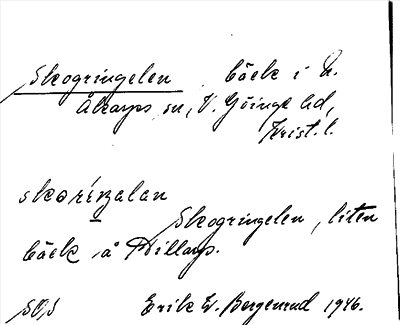 Skogringelen bäck i N.
Åkarps sn, V. Göinge hd,
Krist. l.
skoríŋalan
Skogringelen, liten
bäck å Tillarp.
Erik W. Bergenrud 1946.